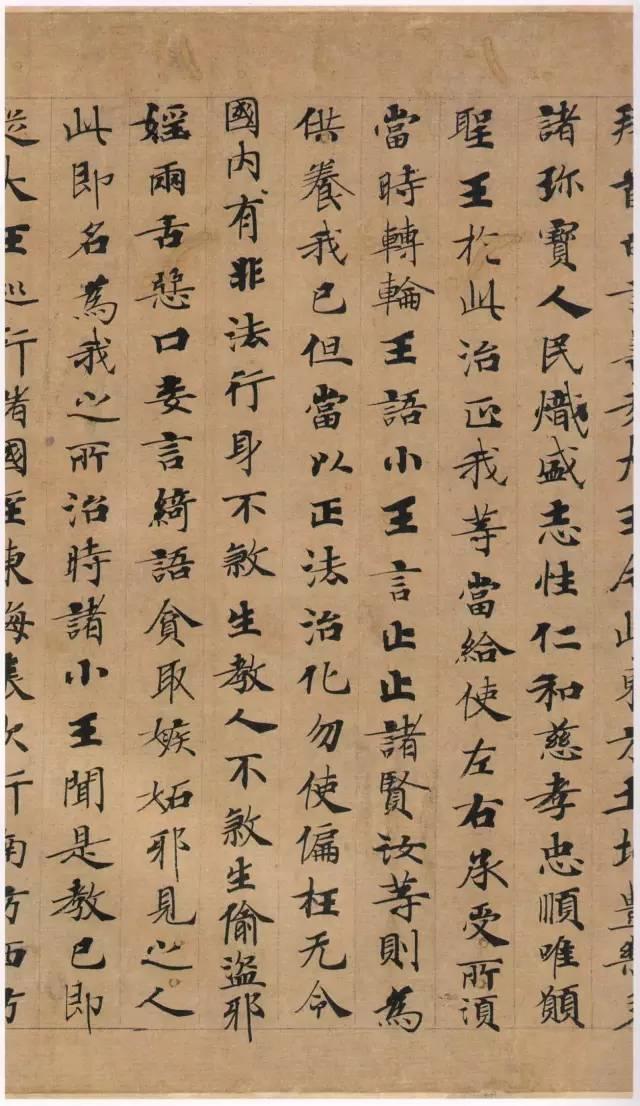 拜首白言善哉大王今此東方土地豊樂多
諸珎寶人民熾盛志性仁和慈孝忠順唯願
聖王於此治正我等當給使左右承受所湏
當時轉輪王語小王言止止諸賢汝等則為
供養我已但當以正法治化勿使偏枉无令
國內有非法行身不煞生教人不煞生偷盜邪
婬兩舌惡口妄言綺語貪取嫉妬邪見之人
此即名為我之所治時諸小王聞是教已即
從大王巡行諸國至東海表次行南方西方